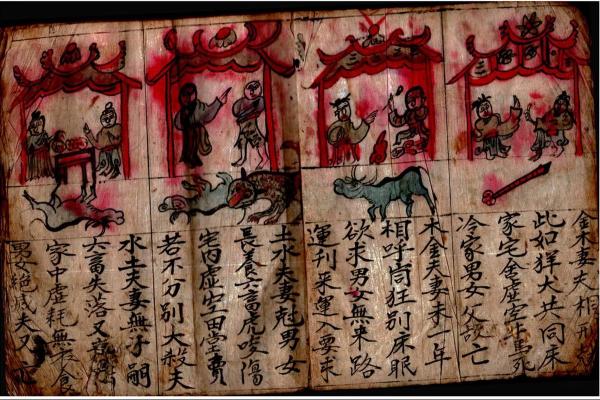 金木妻夫相刑
此如猪犬共同床
家宅舍虛空牛馬死
冷家男女父母亡
木金夫妻未一年
相呼筒狂別床眠
欲求男女無來路
運刊來運入要來
土水夫妻尅男女
長養六畜虎咬傷
宅內虛空田堂賣
若不分別大殺夫
水土夫妻無子嗣
六畜失落又
家中虛耗無衣食
男女絕滅夫又亡